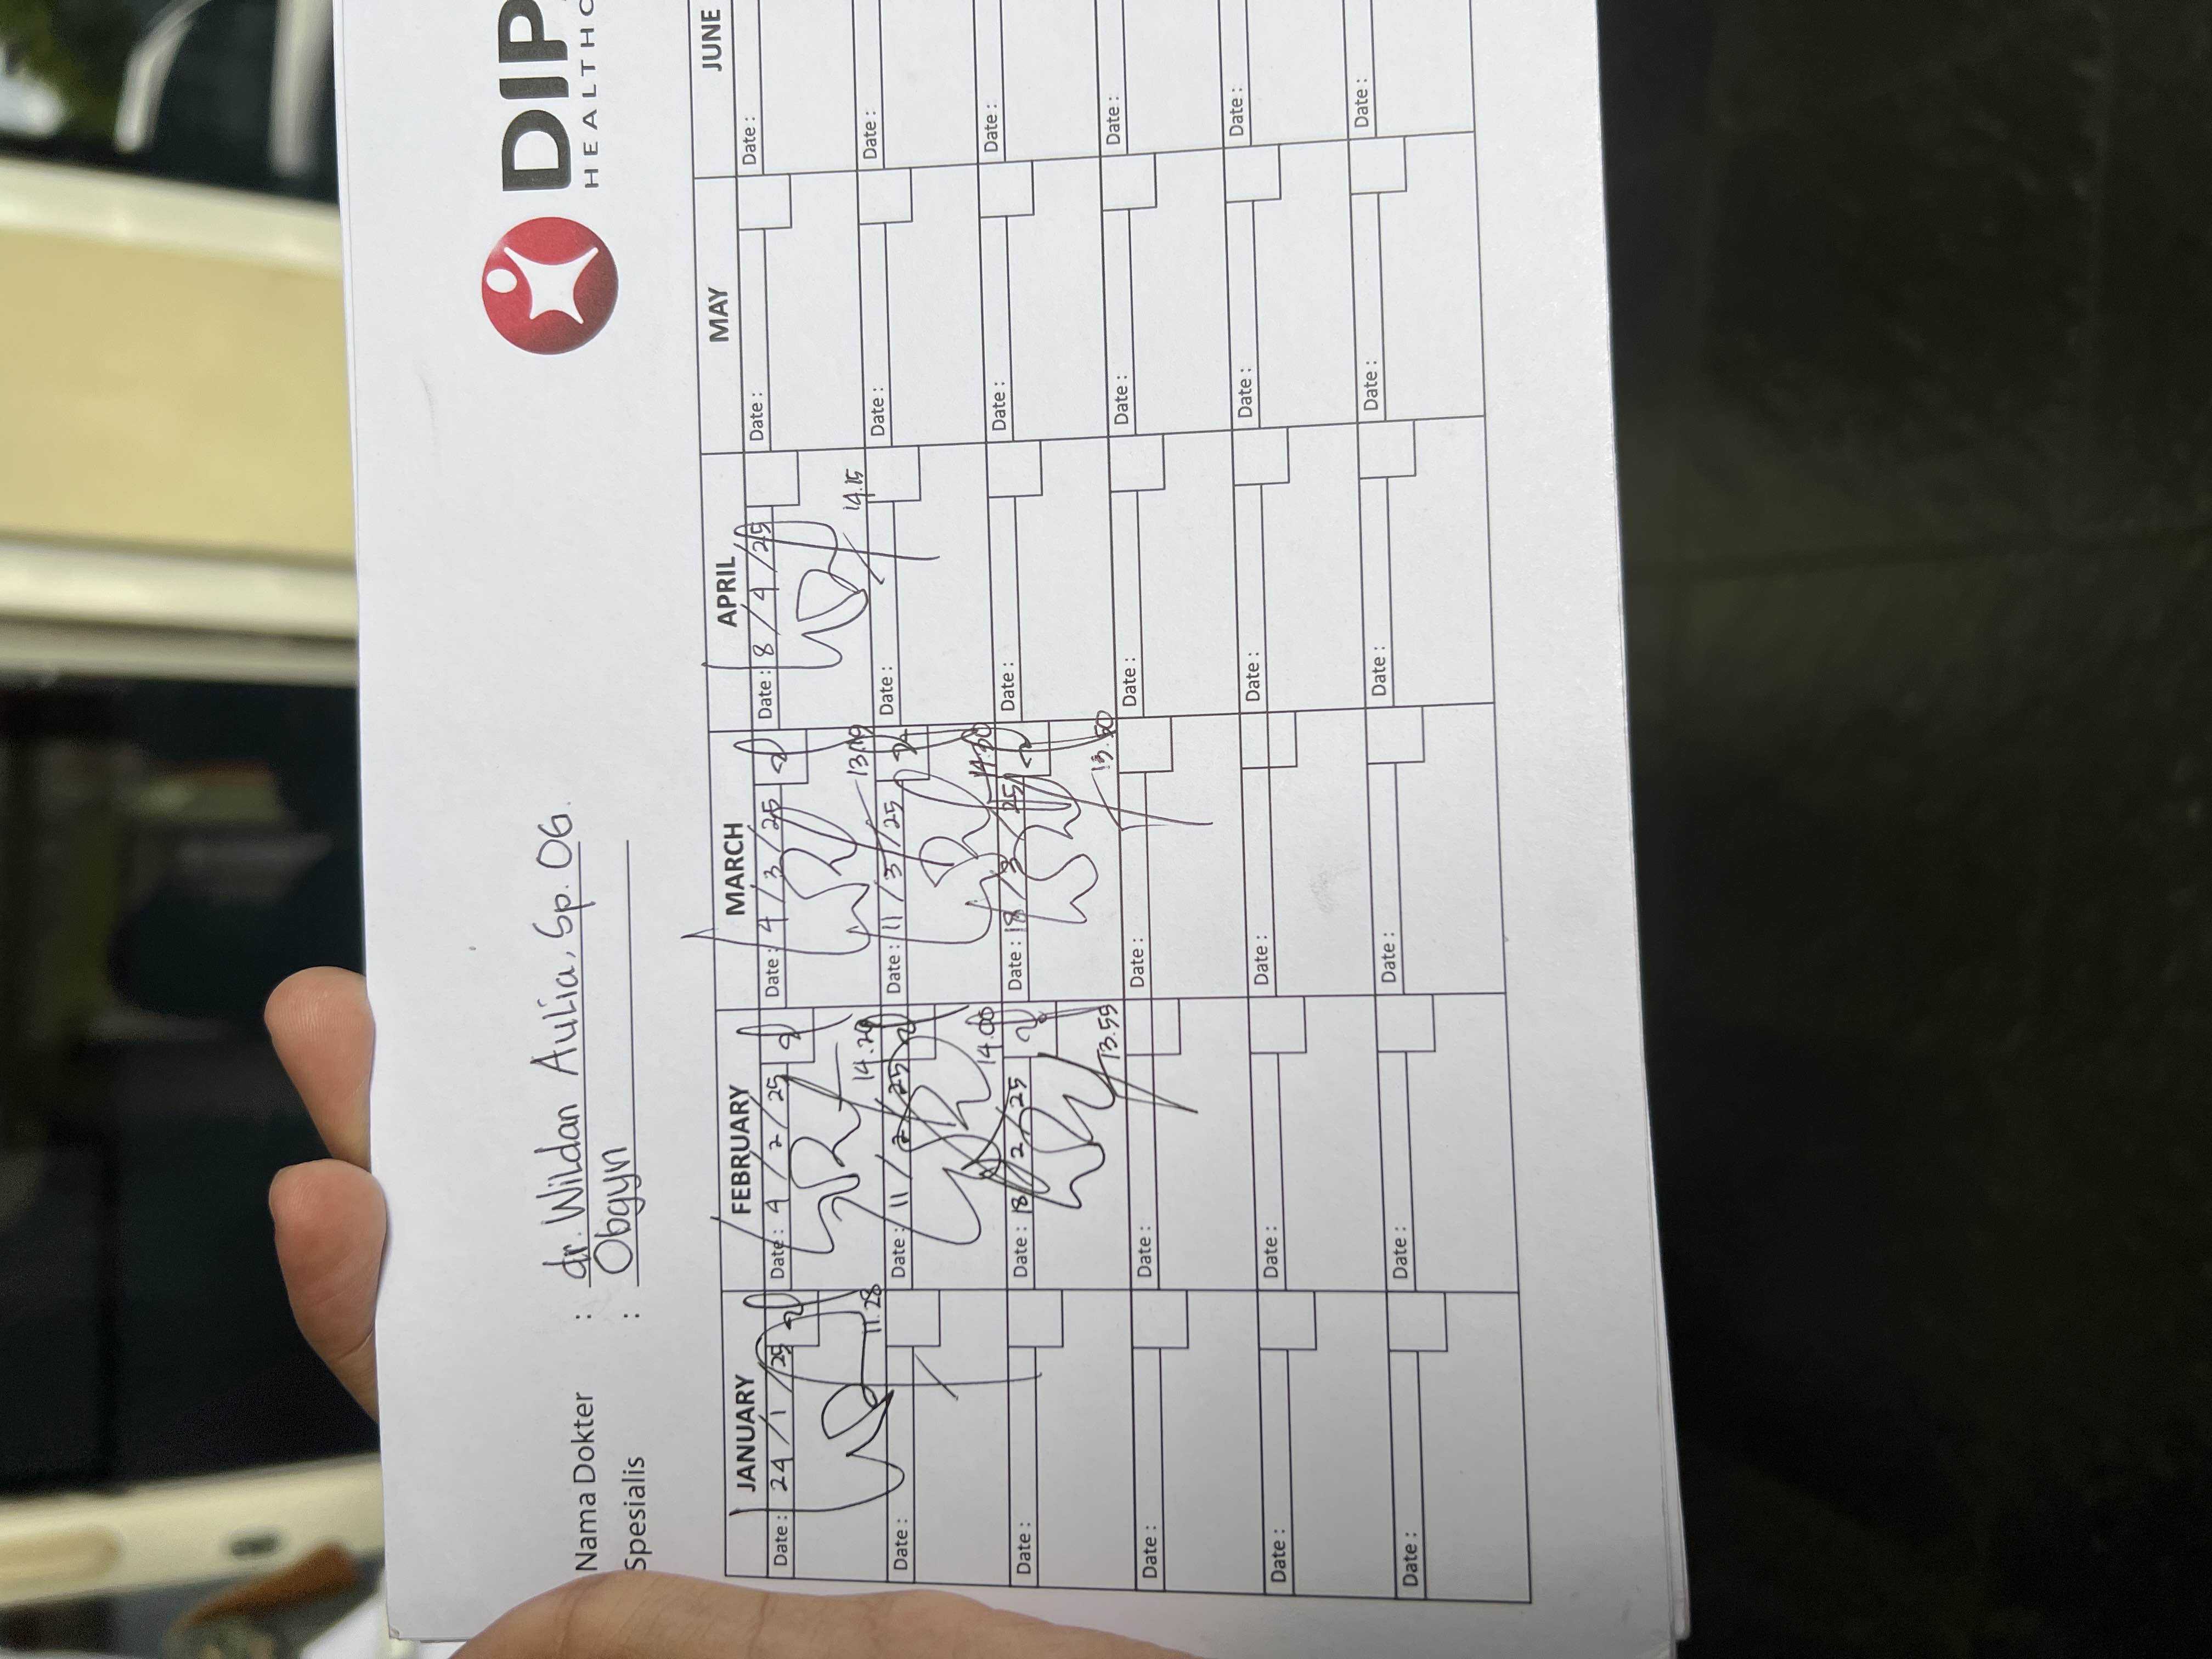 DIP
HEALTHC
Nama Dokter : dr. Wildan Aulia, Sp. OG.
Spesialis : Obgyn
JANUARY FEBRUARY MARCH APRIL MAY JUNE
Date : 24 / 1 / 25 Date : 4 / 2 / 25 Date : 4 / 3 / 25 Date : 8 / 4 / 25 Date : Date :
11.28 14.20 13.09 14.15
Date : Date : 11 / 2 / 25 Date : 11 / 3 / 25 Date : Date : Date :
14.00 14.30
Date : Date : 18 / 2 / 25 Date : 18 / 3 / 25 Date : Date : Date :
13.55 13.50
Date : Date : Date : Date : Date : Date :
Date : Date : Date : Date : Date : Date :
Date : Date : Date : Date : Date : Date :